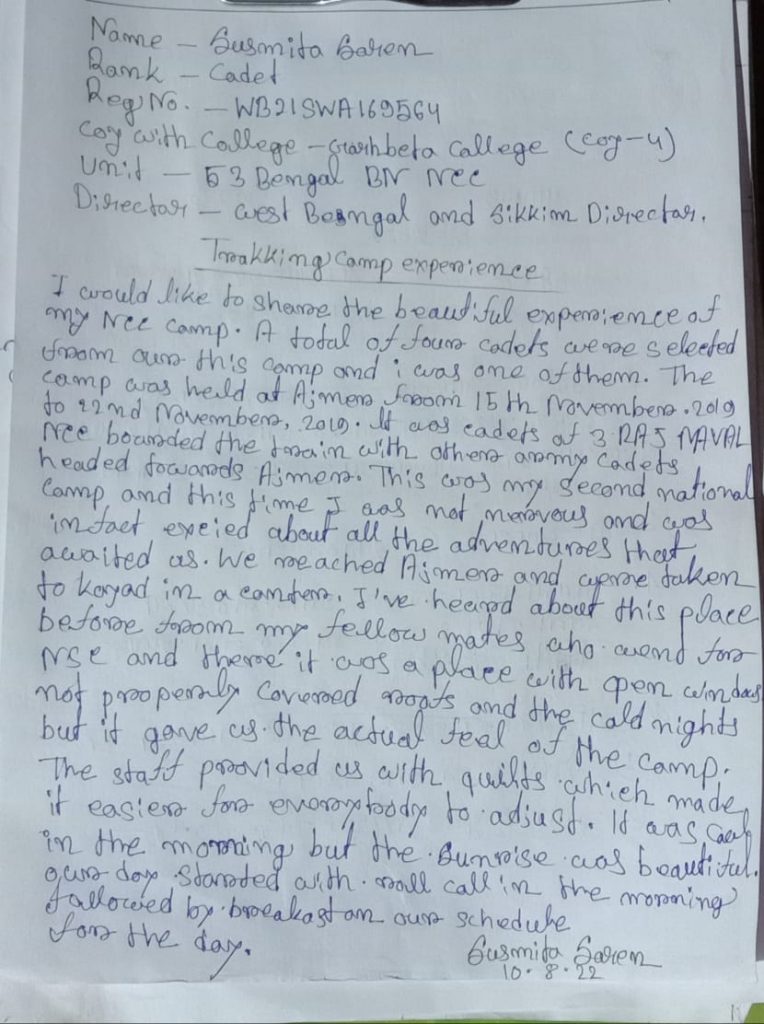 Name – Susmita Saren
Rank – Cadet
Reg No. – WB21SWA169564
Coy with College – Garhbeta College (coy-4)
Unit – 53 Bengal BN NCC
Director – West Bengal and Sikkim Director.
Trakking Camp experience
I would like to share the beautiful experience of
my NCC camp. A total of four cadets were selected
from our this camp and i was one of them. The
camp was heald at Ajmer from 15th November. 2019
to 22nd November, 2019. It was cadets of 3 RAJ NAVAL
NCC bourded the train with others army cadets
headed fowards Ajmer. This was my second national
Camp and this time I was not nervous and was
infact exeied about all the adventures that
awaited us. We reached Ajmer and were taken
to Kayad in a canter. I've heard about this place
before from my fellow mates who wend for
NSC and there it was a place with open windows
not properly covered roofs and the cald nights
but it gave us the actual feel of the camp.
The staff provided us with quilts which made
it easier for everybody to adjust. It was cool
in the morning but the sunrise was beautiful.
our day started with roll call in the morning
fallowed by breakast an our schedule
for the day.
Susmita Saren
10.8.22